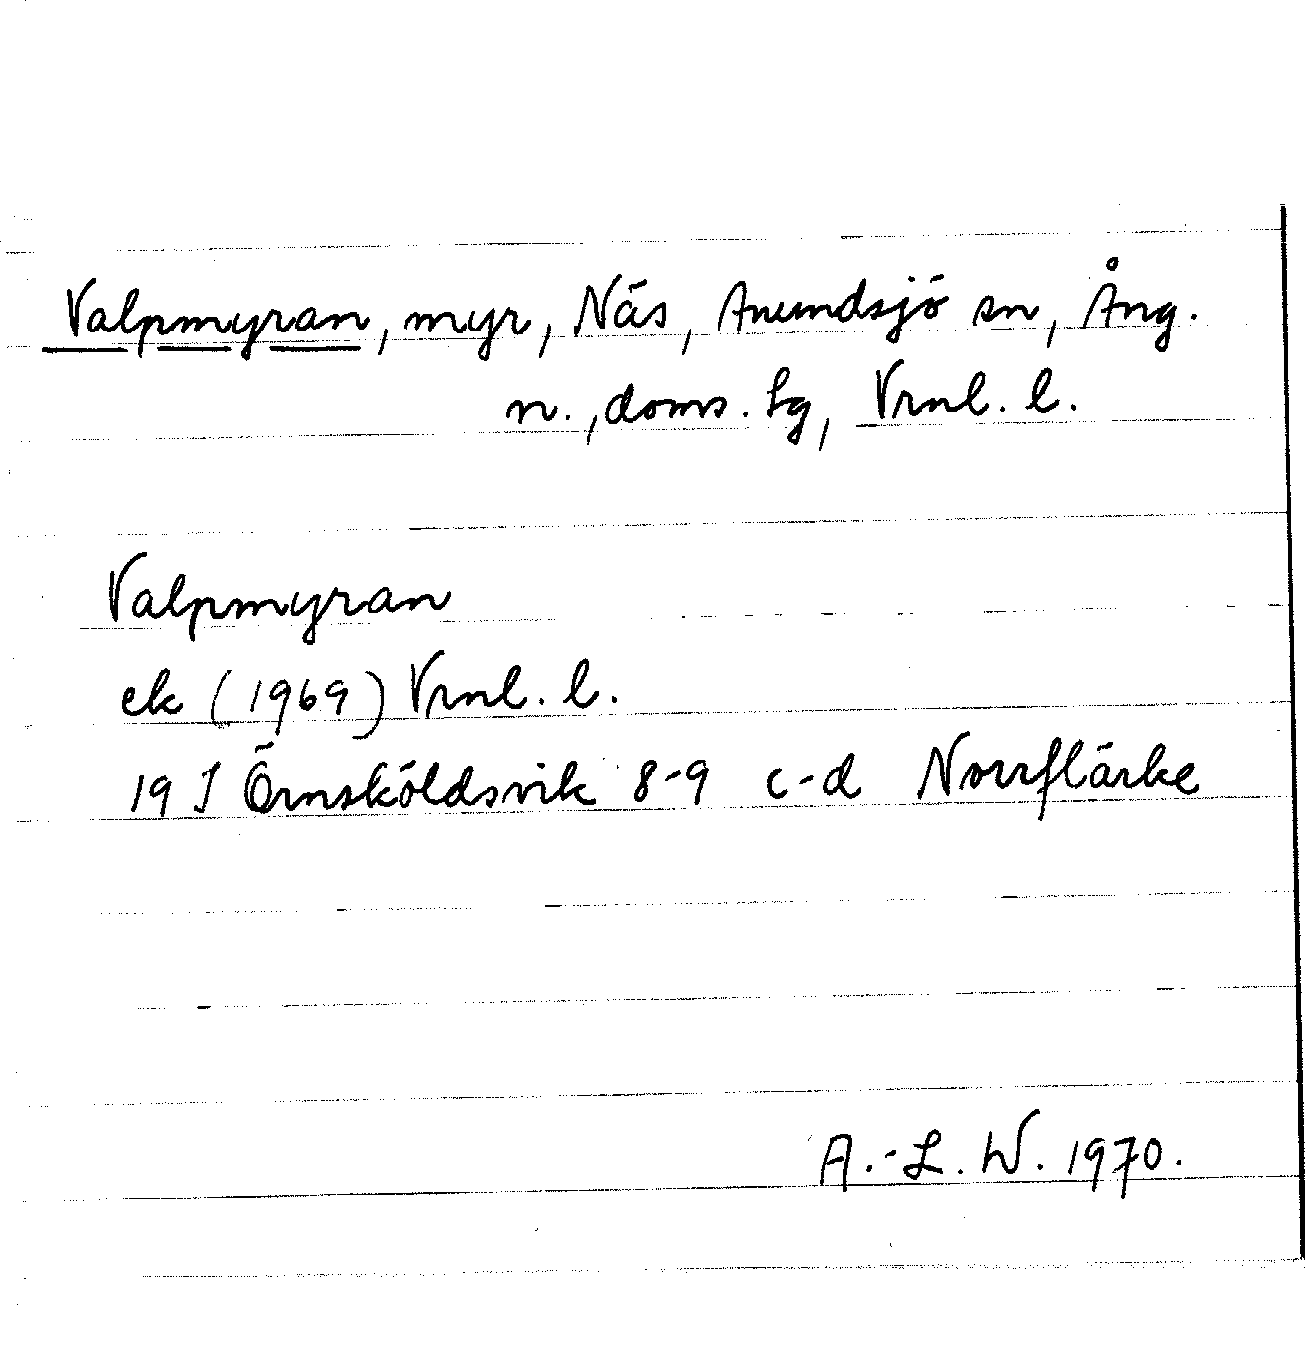 Valpmyran, myr, Näs, Anundsjö sn, Ång.
n., doms. lg, Vrnl. l.
Valpmyran
ek (1969) Vrnl. l.
19 J Örnsköldsvik 8-9 c-d Norrflärke
A.-L. W. 1970.